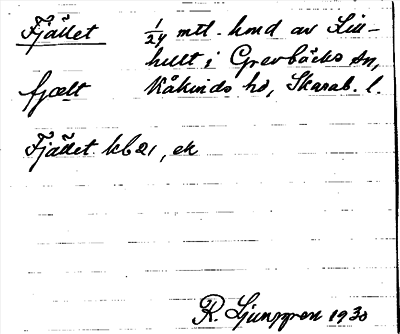 Fjället 1/24 mtl. hmd av Lill-
hult i Grevbäcks sn,
fjælt Kåkinds hd, Skarab. l.
Fjället kb 21, ek
R. Ljunggren 1930